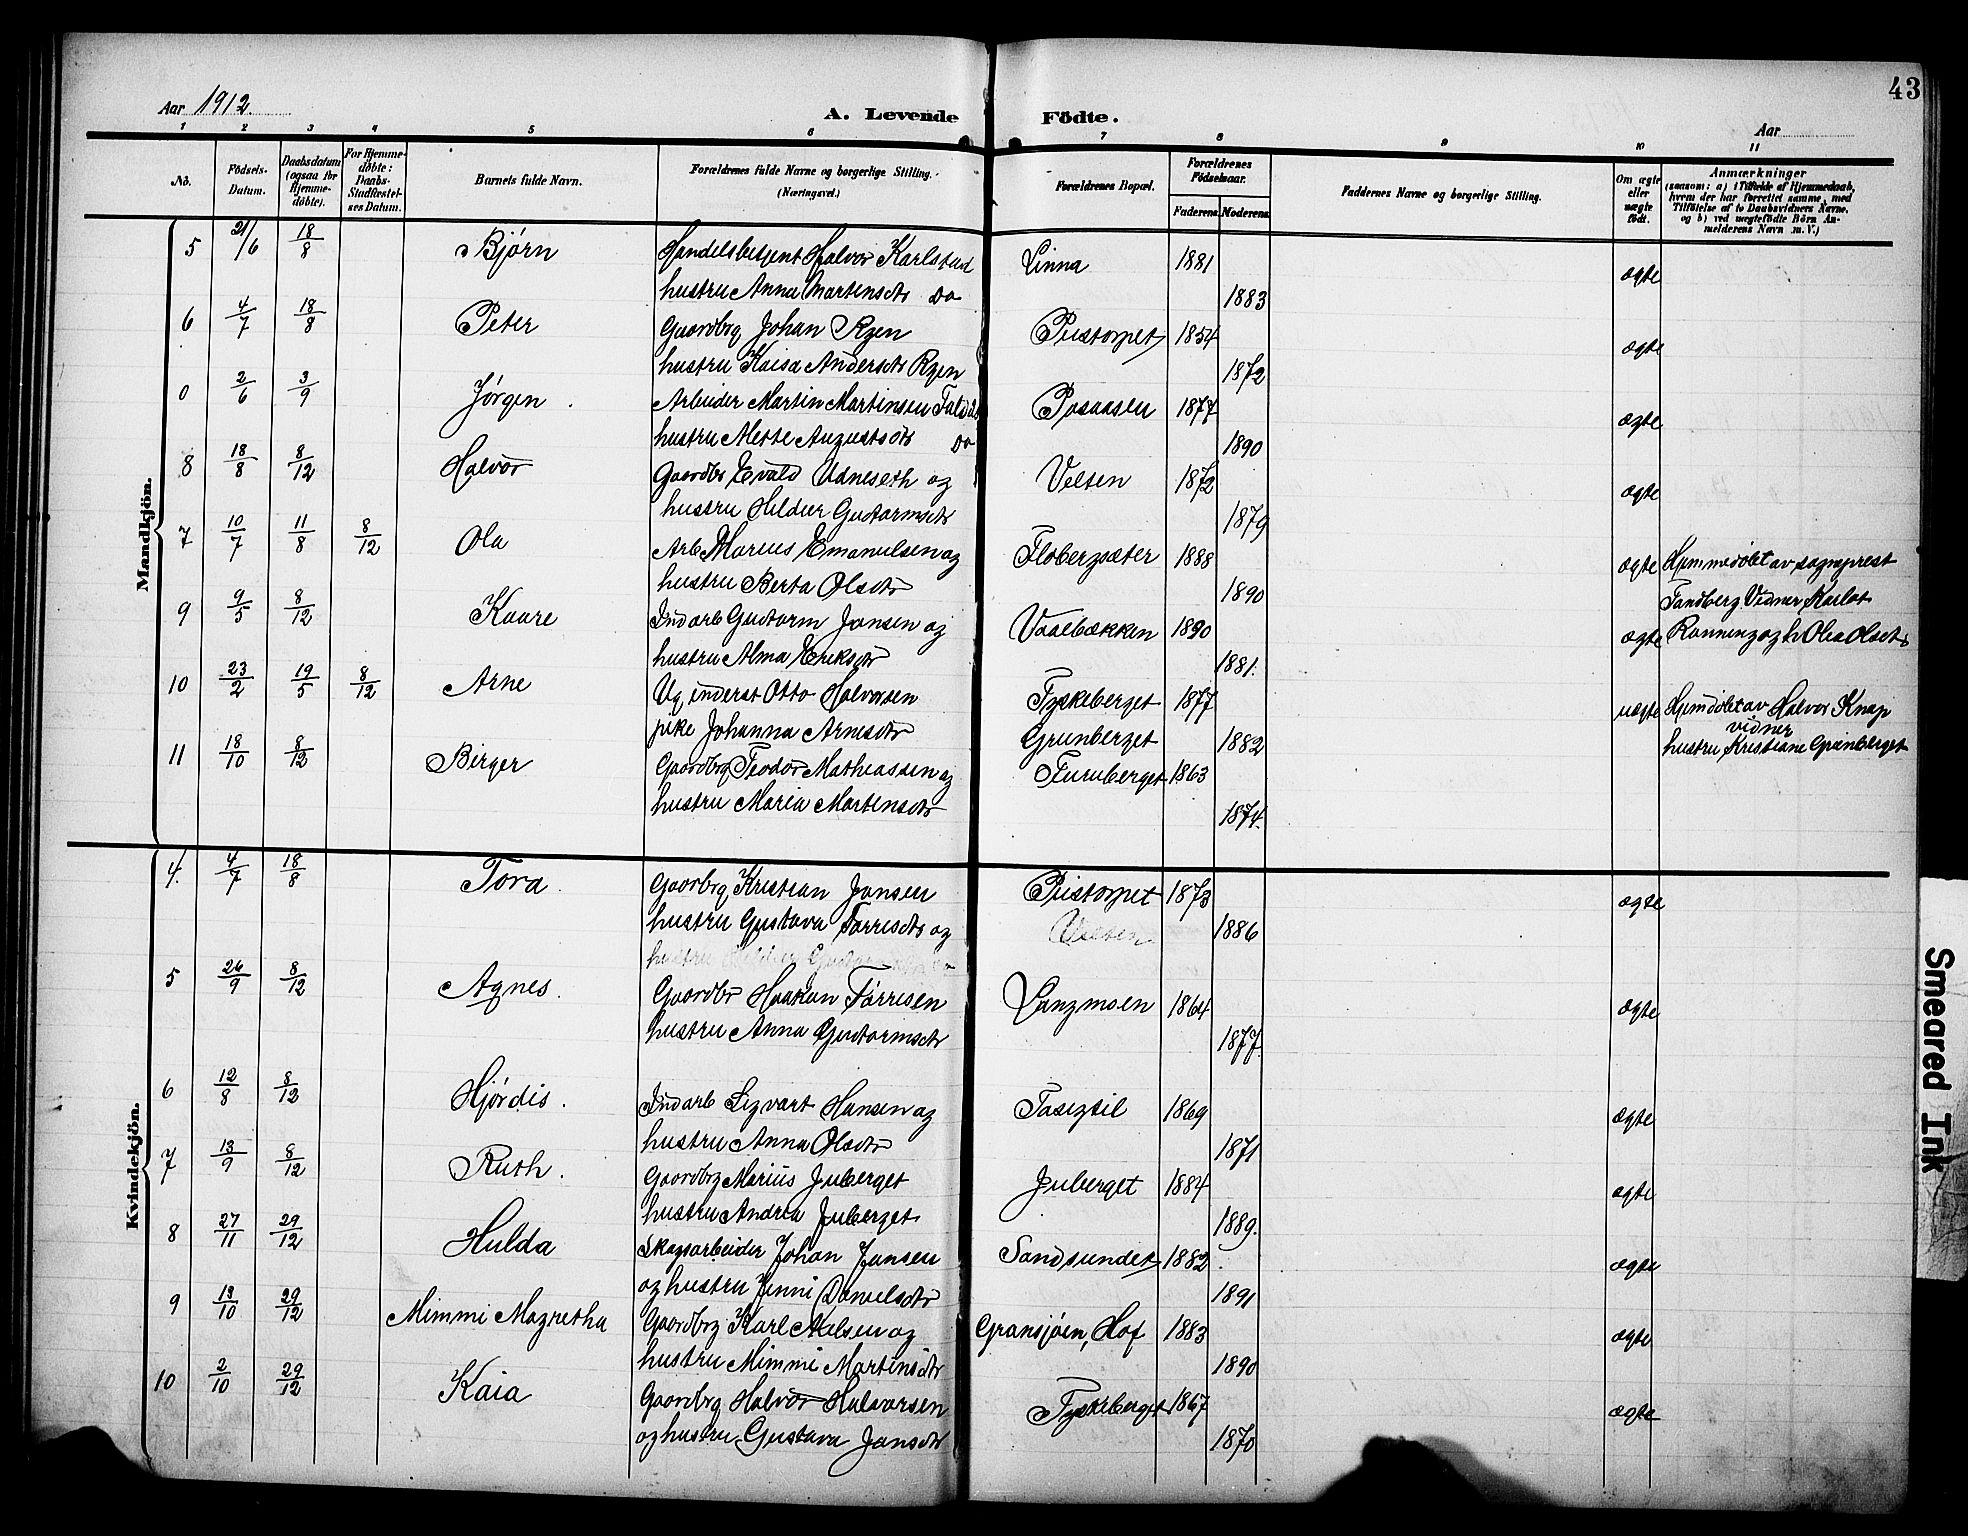 43
Aar 1912.
A. Levende Födte.
Aar
1 2 3 4 5 6 7 8 9 10 11
No.
Födsels-Datum.
Daabsdatum (ogsaa for Hjemme-döbte).
For Hjemme-döbte: Daabs-Stadfæstel-ses Datum.
Barnets fulde Navn.
Forældrenes fulde Navne og borgerlige Stilling. (Næringsvei.)
Forældrenes Bopæl.
Forældrenes Födselsaar.
Faderens Moderens
Faddernes Navne og borgerlige Stilling.
Om ægte eller uægte födt.
Anmærkninger
(saasom: a) i Tilfælde af Hjemmedaab,
hvem der har forrettet samme, med
Tilföielse af to Daabsvidners Navne,
og b) ved uægtefödte Börn An-
melderens Navn m. V.)
Mandkjön.
5 21/6 18/8 Bjørn Handelsbetjent Halvor Karlstad Linna 1881 ægte
hustru Anna Martensdtr Do 1883
6 4/7 18/8 Peter Gaardbrg Johan Ryen Peistorpet 1854 ægte
hustru Kaisa Andersdtr Ryen 1872
0 2/6 3/9 Jørgen . Arbeider Martin Martinsen Posaasen 1877 ægte
hustru Mette Augustsdtr Do 1890
8 18/8 8/12 Halvor Gaardbr Evald Udneseth og Velsen 1872 ægte
hustru Hilder Gudtormsdtr 1879
7 10/7 11/8 8/12 Ola Arb Marius Emanulsen og Flobergsæter 1888 ægte Hjemmedøbt av sogneprest
hustru Berta Olsdtr 1890 Tandberg Vidner Karlot
9 9/5 8/12 Kaare Ind arb Gudtorm Jansen og Vaalbækken 1890 ægte Rønning og h Olea Olsdtr
hustru Alma Eriksdtr 1881.
10 23/2 19/5 8/12 Arne Ug, inderst Otto Halvorsen Tyskeberget 1877 uægte Hjemdøbt av Halvor Knap
vidner
pike Johanna Arnesdtr Grønberget 1882 hustru Kristiane Grønberget
11 18/10 8/12 Birger Gaardbrg Teodor Mathiassen og Furuberget 1863
hustru Maria Martensdtr 1874.
Kvindekjön.
4. 4/7 18/8 Tora. Gaarbrg Kristian Jansen Peistorpet 1873 ægte
hustru Gustava Tørresdtr og Velsen 1886
5 26/9 8/12 Agnes. Gaardbr Haakon Tørresen Langmoen 1864 ægte
hustru Anna Gudtormsdtr 1877.
6 12/8 8/12 Hjørdis. Ind arb Sigvart Hansen og 1869 ægte
hustru Anna Olsdtr 1871
7 13/9 8/12 Ruth. Gaardbrg Marius Juberget Juberget 1884 ægte
hustru Andrea Juberget 1889.
8 27/11 29/12 Hulda Skogsarbeider Johan Jansen Sandsundet 1882 ægte
og hustru Jenni Danielsdtr 1891
9 12/10 29/12 Mimmi Magretha Gaardbrg Karl Nilsen og Gransjøen, Hof 1883 ægte
hustru Mimmi Martinsdtr 1890
10 2/10 29/12 Kaia Gaardbrg Halvor Halvorsen Tyskeberget 1867 ægte
og hustru Gustava Jansdtr 1870
Smeared Ink